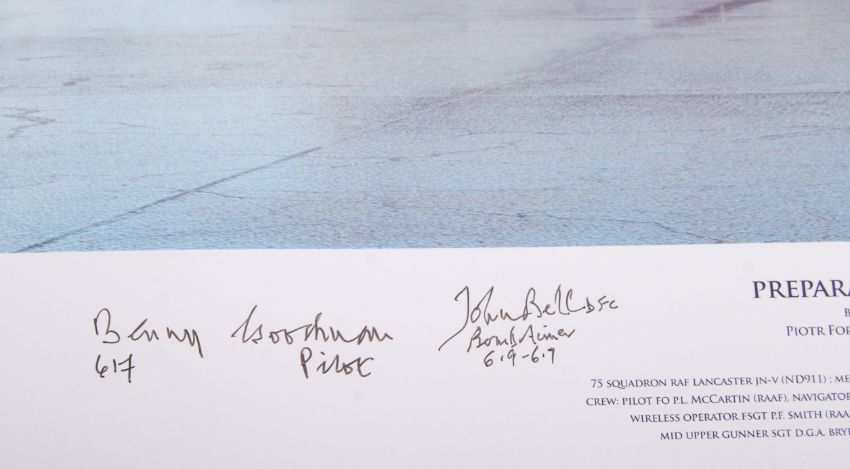 Benny Goodman
617 Pilot
John Bell DFC
Bomb Aimer
619-617
PREPARA
B
PIOTR FOR
75 SQUADRON RAF LANCASTER JN-V (ND911) ; ME
CREW: PILOT FO P.L. MCCARTIN (RAAF), NAVIGATOR
WIRELESS OPERATOR FSGT P.F. SMITH (RAA
MID UPPER GUNNER SGT D.G.A. BRY